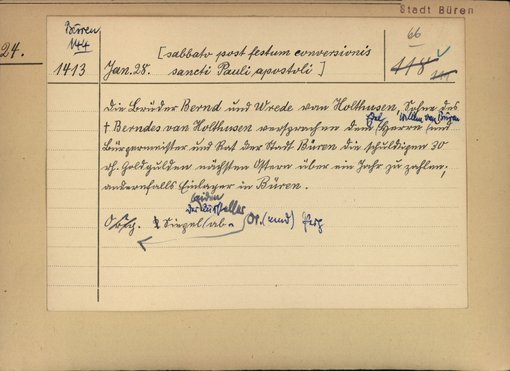 Stadt Büren
24.
Büren
144
66
[sabbato post festum conversionis
418
1413 Jan. 28. sancti Pauli apostoli]
Die Brüder Bernd und Wrede van Holthusen, Söhne des
† Berndes van Holthusen versprachen dem Edel Herrn und
Bürgermeister und Rat der Stadt Büren die schuldigen 30
rh. Goldgulden nächsten Ostern über ein Jahr zu zahlen,
andernfalls Einlager in Büren.
beiden
der Aussteller
2 Siegel ab Or. (mnd) Perg